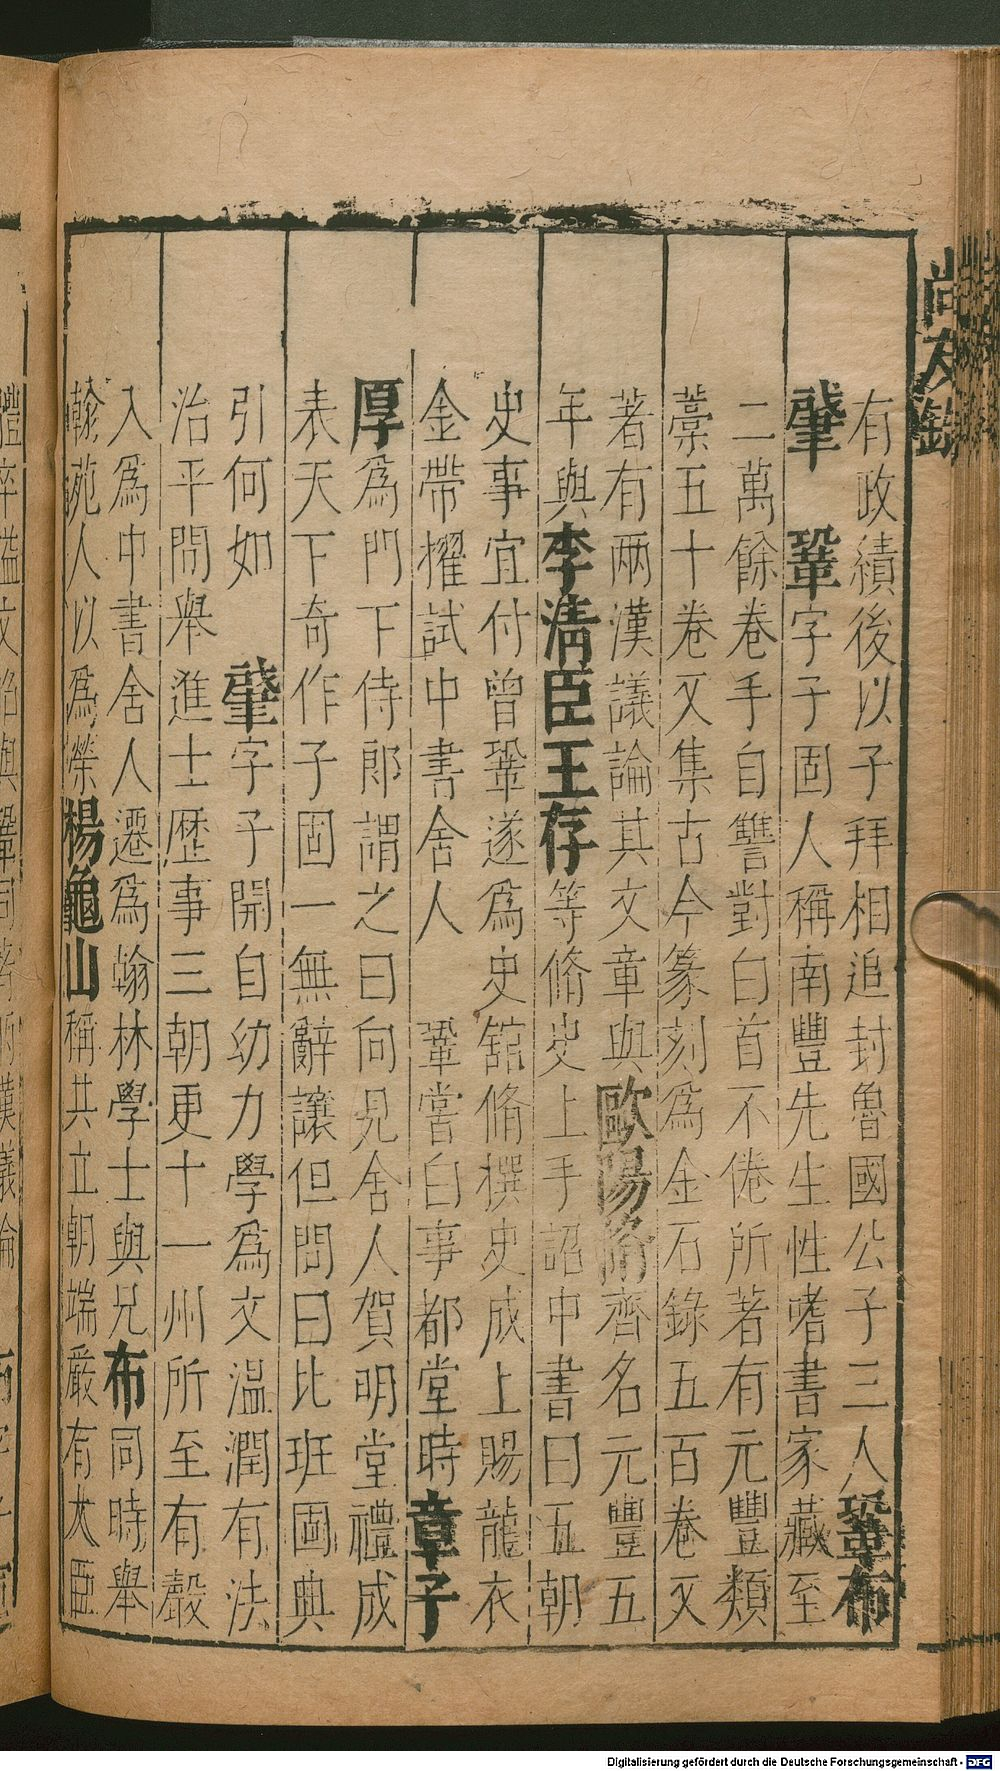 尚友錄
有政績後以子拜相追封魯國公子三人鞏布
肇 鞏字子固人稱南豐先生性嗜書家藏至
二萬餘卷手自讐對白首不倦所著有元豐類
藁五十卷又集古今篆刻爲金石錄五百卷又
著有兩漢議論其文章與歐陽脩齊名元豐五
年與李淸臣王存等脩史上手詔中書曰五朝
史事宜付曾鞏遂爲史舘脩撰史成上賜龍衣
金帶擢試中書舍人 鞏嘗白事都堂時章子
厚爲門下侍郎謂之曰向見舍人賀明堂禮成
表天下奇作子固一無辭讓但問曰比班固典
引何如 肇字子開自幼力學爲文溫潤有法
治平間舉進士歷事三朝更十一州所至有聲
入爲中書舍人遷爲翰林學士與兄布同時舉
翰苑人以爲榮楊龜山稱其立朝端嚴有大臣
體卒謚文昭與鞏同著兩漢議論
Digitalisierung gefördert durch die Deutsche Forschungsgemeinschaft - DFG